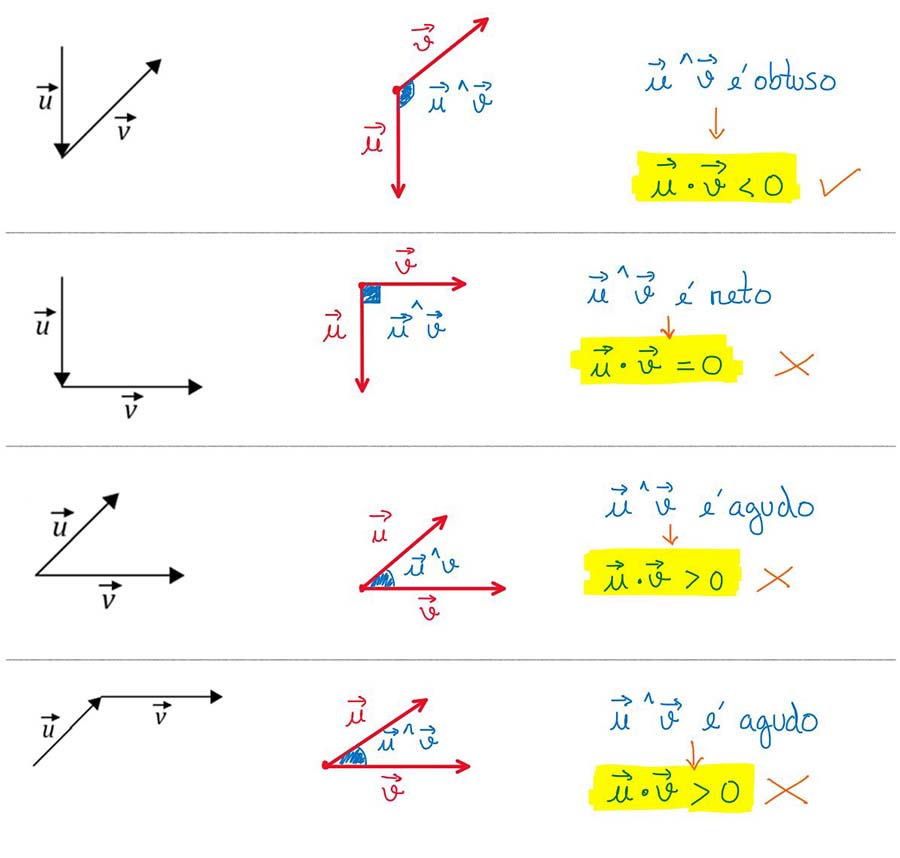 u⃗
v⃗
v⃗
u⃗ ^ v⃗
u⃗
u⃗ ^ v⃗ é obtuso
u⃗ · v⃗ < 0
u⃗
v⃗
v⃗
u⃗
u⃗ ^ v⃗
u⃗ ^ v⃗ é reto
u⃗ · v⃗ = 0
u⃗
v⃗
u⃗
u⃗ ^ v
v⃗
u⃗ ^ v⃗ é agudo
u⃗ · v⃗ > 0
u⃗
v⃗
u⃗
u⃗ ^ v⃗
v⃗
u⃗ ^ v⃗ é agudo
u⃗ · v⃗ > 0